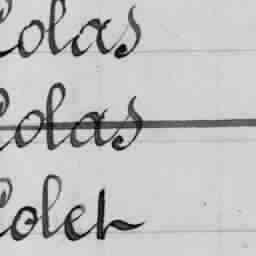 Colas
Colas
Colet